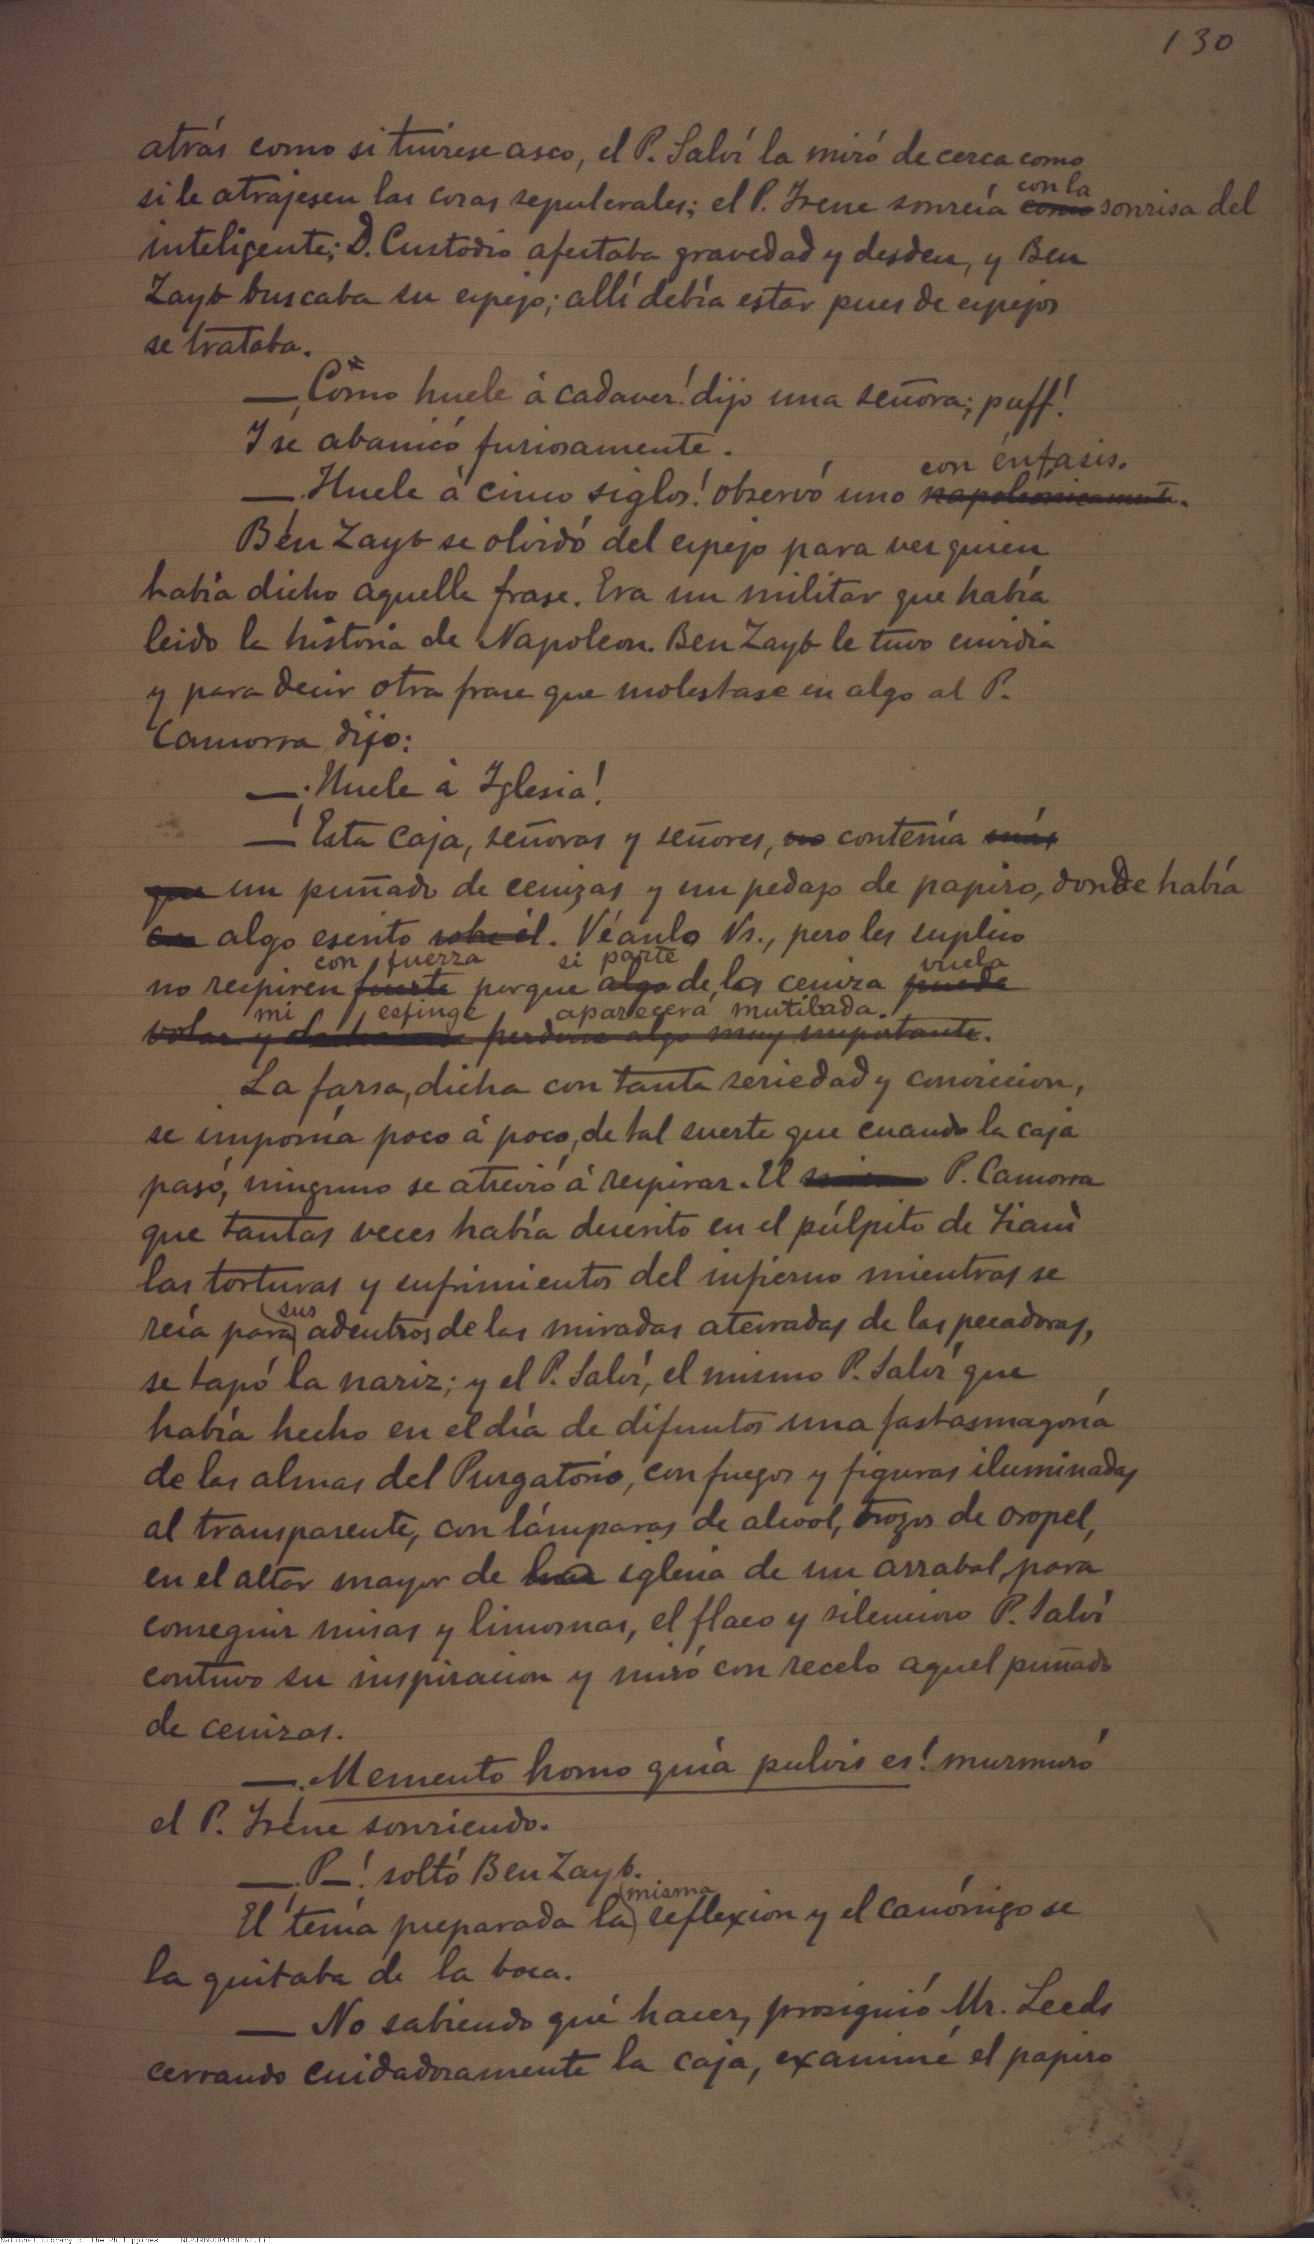 130
atrás como si tuviese asco, el P. Salví la miró de cerca como
si le atrajesen las cosas sepulcrales; el P. Irene sonreía como con la sonrisa del
inteligente; D. Custodio afectaba gravedad y desden, y Ben
Zayb buscaba su espejo; allí debía estar pues de espejos
se trataba.
—¡Cómo huele á cadaver! dijo una señora; puff!
Y se abanicó furiosamente.
—¡Huele á cinco siglos! observó uno napoleónicamente con énfasis.
Ben Zayb se olvidó del espejo para ver quien
había dicho aquella frase. Era un militar que había
leido la historia de Napoleon. Ben Zayb le tuvo envidia
y para decir otra frase que molestase en algo al P.
Camorra dijo:
—¡Huele á Iglesia!
—Esta caja, señoras y señores, no contenía más
que un puñado de cenizas y un pedazo de papiro, donde había
con algo escrito sobre él. Véanlo Vs., pero les suplico
con fuerza si parte vuela
no respiren fuerte porque algo de la ceniza puede
mi esfinge aparecerá mutilada.
volar y perderse algo muy importante.
La farsa, dicha con tanta seriedad y conviccion,
se imponía poco á poco, de tal suerte que cuando la caja
pasó, ninguno se atrevió á respirar. El P. Camorra
que tantas veces había descrito en el púlpito de Tianì
las torturas y sufrimientos del infierno mientras se
reía para sus adentros de las miradas aterradas de las pecadoras,
se tapó la nariz; y el P. Salví, el mismo P. Salví que
había hecho en el día de difuntos una fastasmagoría
de las almas del Purgatorio, con fuegos y figuras iluminadas
al transparente, con lámparas de alcool, trozos de oropel,
en el altar mayor de la iglesia de un arrabal, para
conseguir misas y limosnas, el flaco y silencioso P. Salví
contuvo su inspiracion y miró con recelo aquel puñado
de cenizas.
—¡Memento homo quia pulvis es! murmuró
el P. Irene sonriendo.
—¡P—! soltó Ben Zayb.
El tenía preparada la misma reflexion y el canónigo se
la quitaba de la boca.
— No sabiendo qué hacer, prosiguió Mr. Leeds
cerrando cuidadosamente la caja, examiné el papiro